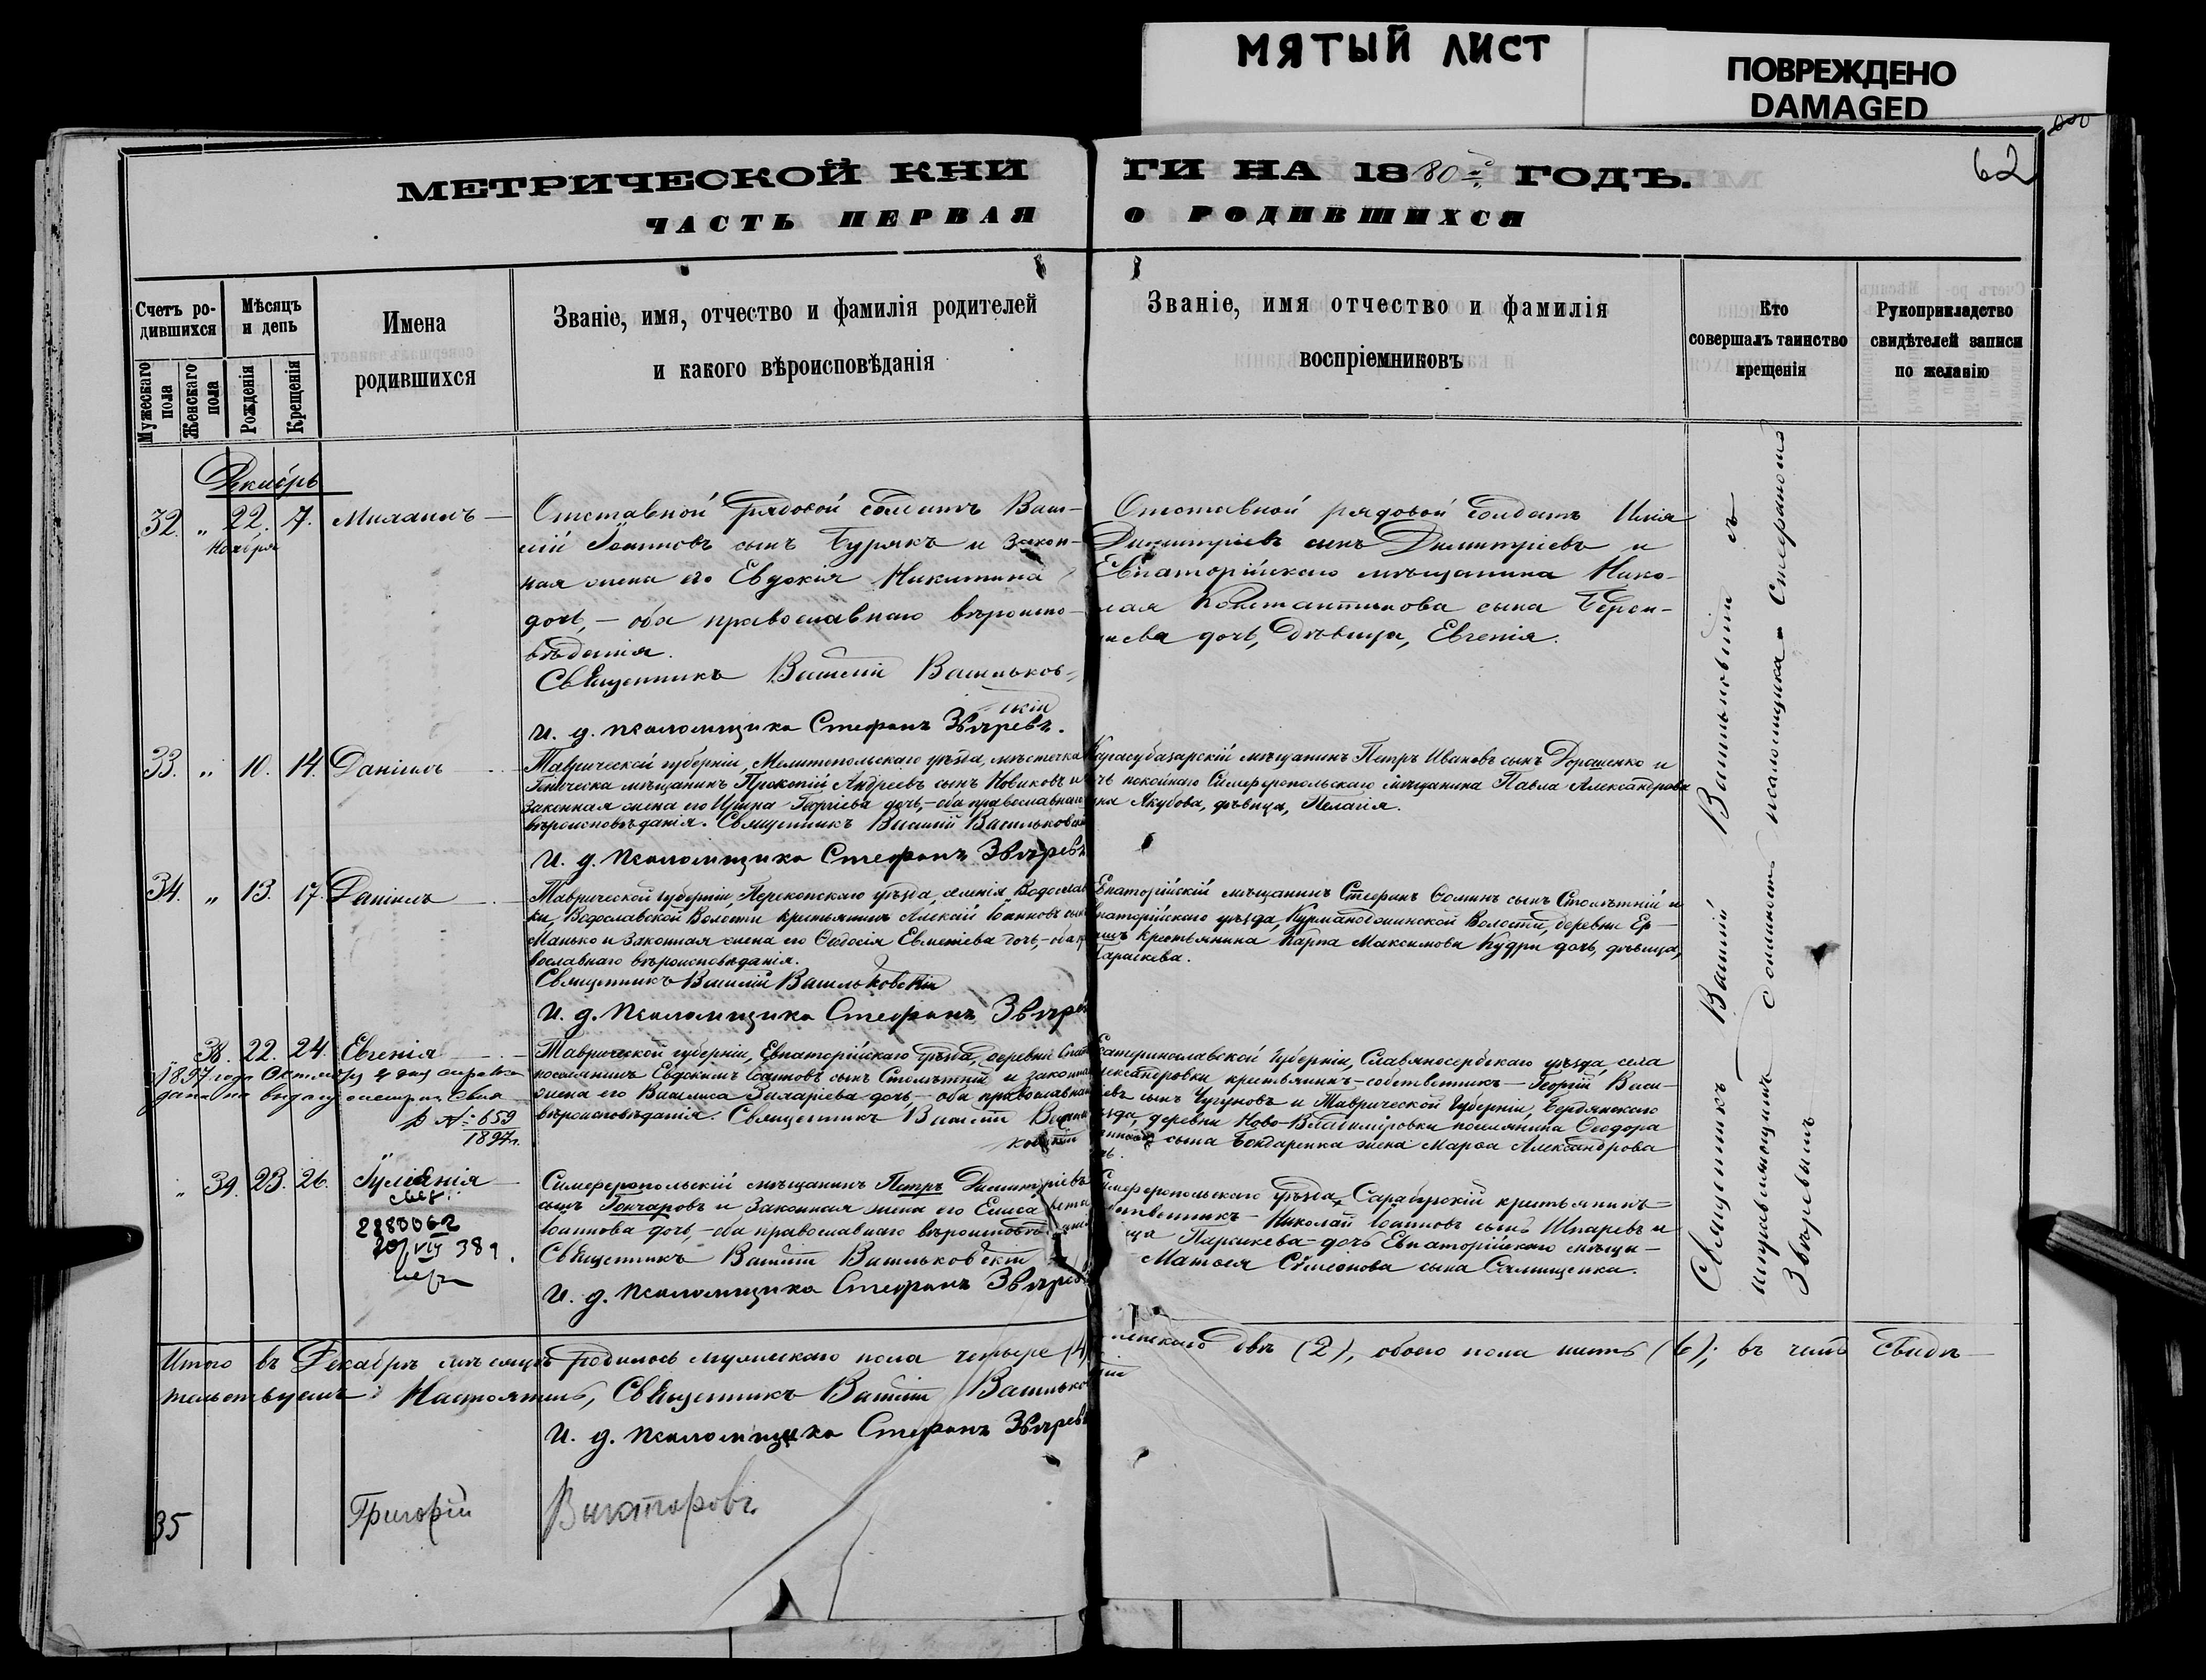 МЯТЫЙ ЛИСТ
ПОВРЕЖДЕНО
DAMAGED
62
МЕТРИЧЕСКОЙ КНИ ГИ НА 1880й ГОДЪ.
ЧАСТЬ ПЕРВАЯ О РОДИВШИХСЯ
Счетъ ро-
дившихся
Мужескаго пола
Женскаго пола
Мѣсяцъ
и день
Рожденія
Крещенія
Имена
родившихся
Званіе, имя, отчество и фамилія родителей
и какого вѣроисповѣданія
Званіе, имя отчество и фамилія
воспріемниковъ
Кто
совершалъ таинство
крещенія
Рукоприкладство
свидѣтелей записи
по желанію
Декабрь
32. " 22. 7. Михаилъ
Ноября
Отставной рядовой солдатъ Васи-
лій Іоанновъ сынъ Бурякъ и закон-
ная жена его Евдокія Никитина
дочь, — оба православнаго вѣроиспо-
вѣданія.
Священникъ Василій Васильков-
скій
И. д. псаломщика Стефанъ Звѣревъ.
Отставной рядовой солдатъ Илія
Димитріевъ сынъ Димитріевъ и
Евпаторійскаго мѣщанина Нико-
лая Константинова сына
дочь, дѣвица, Евгенія.
33. " 10. 14. Даніилъ
Таврической губерніи, Мелитопольскаго уѣзда, мѣстечка
Геническа мѣщанинъ Прокопій Андреевъ сынъ Новиковъ и
законная жена его Ирина Георгіева дочь, — оба православнаго
вѣроисповѣданія. Священникъ Василій Васильковскій
И. д. псаломщика Стефанъ Звѣревъ
Карасубазарскій мѣщанинъ Петръ Ивановъ сынъ Дорашенко и
дочь покойнаго Симферопольскаго мѣщанина Павла Александрова
сына Якубова, дѣвица, Пелагія.
34. " 13. 17. Даніилъ
Таврической губерніи, Перекопскаго уѣзда, селенія Водослав
ки, Водославской Волости крестьянинъ Алексій Іоанновъ сынъ
Манько и законная жена его Ѳеодосія Евменіева дочь, — оба пра
вославнаго вѣроисповѣданія.
Священникъ Василій Васильковскій
И. д. псаломщика Стефанъ Звѣрев
Евпаторійскій мѣщанинъ Стефанъ Ѳоминъ сынъ Столѣтній и
Евпаторійскаго уѣзда, Курманаджинской Волости, деревни Ер-
крестьянина Карпа Максимова Кудри дочь, дѣвица,
Параскева.
38. 22. 24. Евгенія
1897 года Октября 4 дня справка
р № 659
1897г.
Таврической губерніи, Евпаторійскаго уѣзда, деревни
поселянинъ Евдокимъ Іоанновъ сынъ Столѣтній и законная
жена его Василиса Захаріева дочь, — оба православнаго
вѣроисповѣданія. Священникъ Василій Василь
ковскій
Екатеринославской губерніи, Славяносербскаго уѣзда, села
Александровки, крестьянинъ-собственникъ — Георгій Васи-
ліевъ сынъ Чугуновъ и Таврической Губерніи, Бердянскаго
уѣзда, деревни Ново-Владиміровки поселянина Ѳеодора
сына Бондаренка жена Марѳа Александрова
" 39. 23. 26. Іуліанія
2880062
20/VII 389.
Симферопольскій мѣщанинъ Петръ Димитріевъ
сынъ Гончаровъ и законная жена его Елисавета
Іоаннова дочь, — оба православнаго вѣроисповѣданія
Священникъ Василій Васильковскій
И. д. псаломщика Стефанъ Звѣревъ
Симферопольскаго уѣзда, Сарабузскій крестьянинъ-
собственникъ — Николай Іоанновъ сынъ Шпаревъ и
Параскева — дочь Евпаторійскаго мѣща-
Матѳея Симеонова сына Салищенка.
Священникъ Василій Васильковскій съ
исправляющимъ должность псаломщика Стефаномъ
Звѣревымъ
Итого въ Декабрѣ мѣсяцѣ родилось мужескаго пола четыре (4) женскаго двѣ (2), обоего пола шесть (6); въ чемъ свидѣ-
тельствуемъ: Настоятель, Священникъ Василій Васильковскій
И. д. псаломщика Стефанъ Звѣревъ
35 Григорій Викторовъ